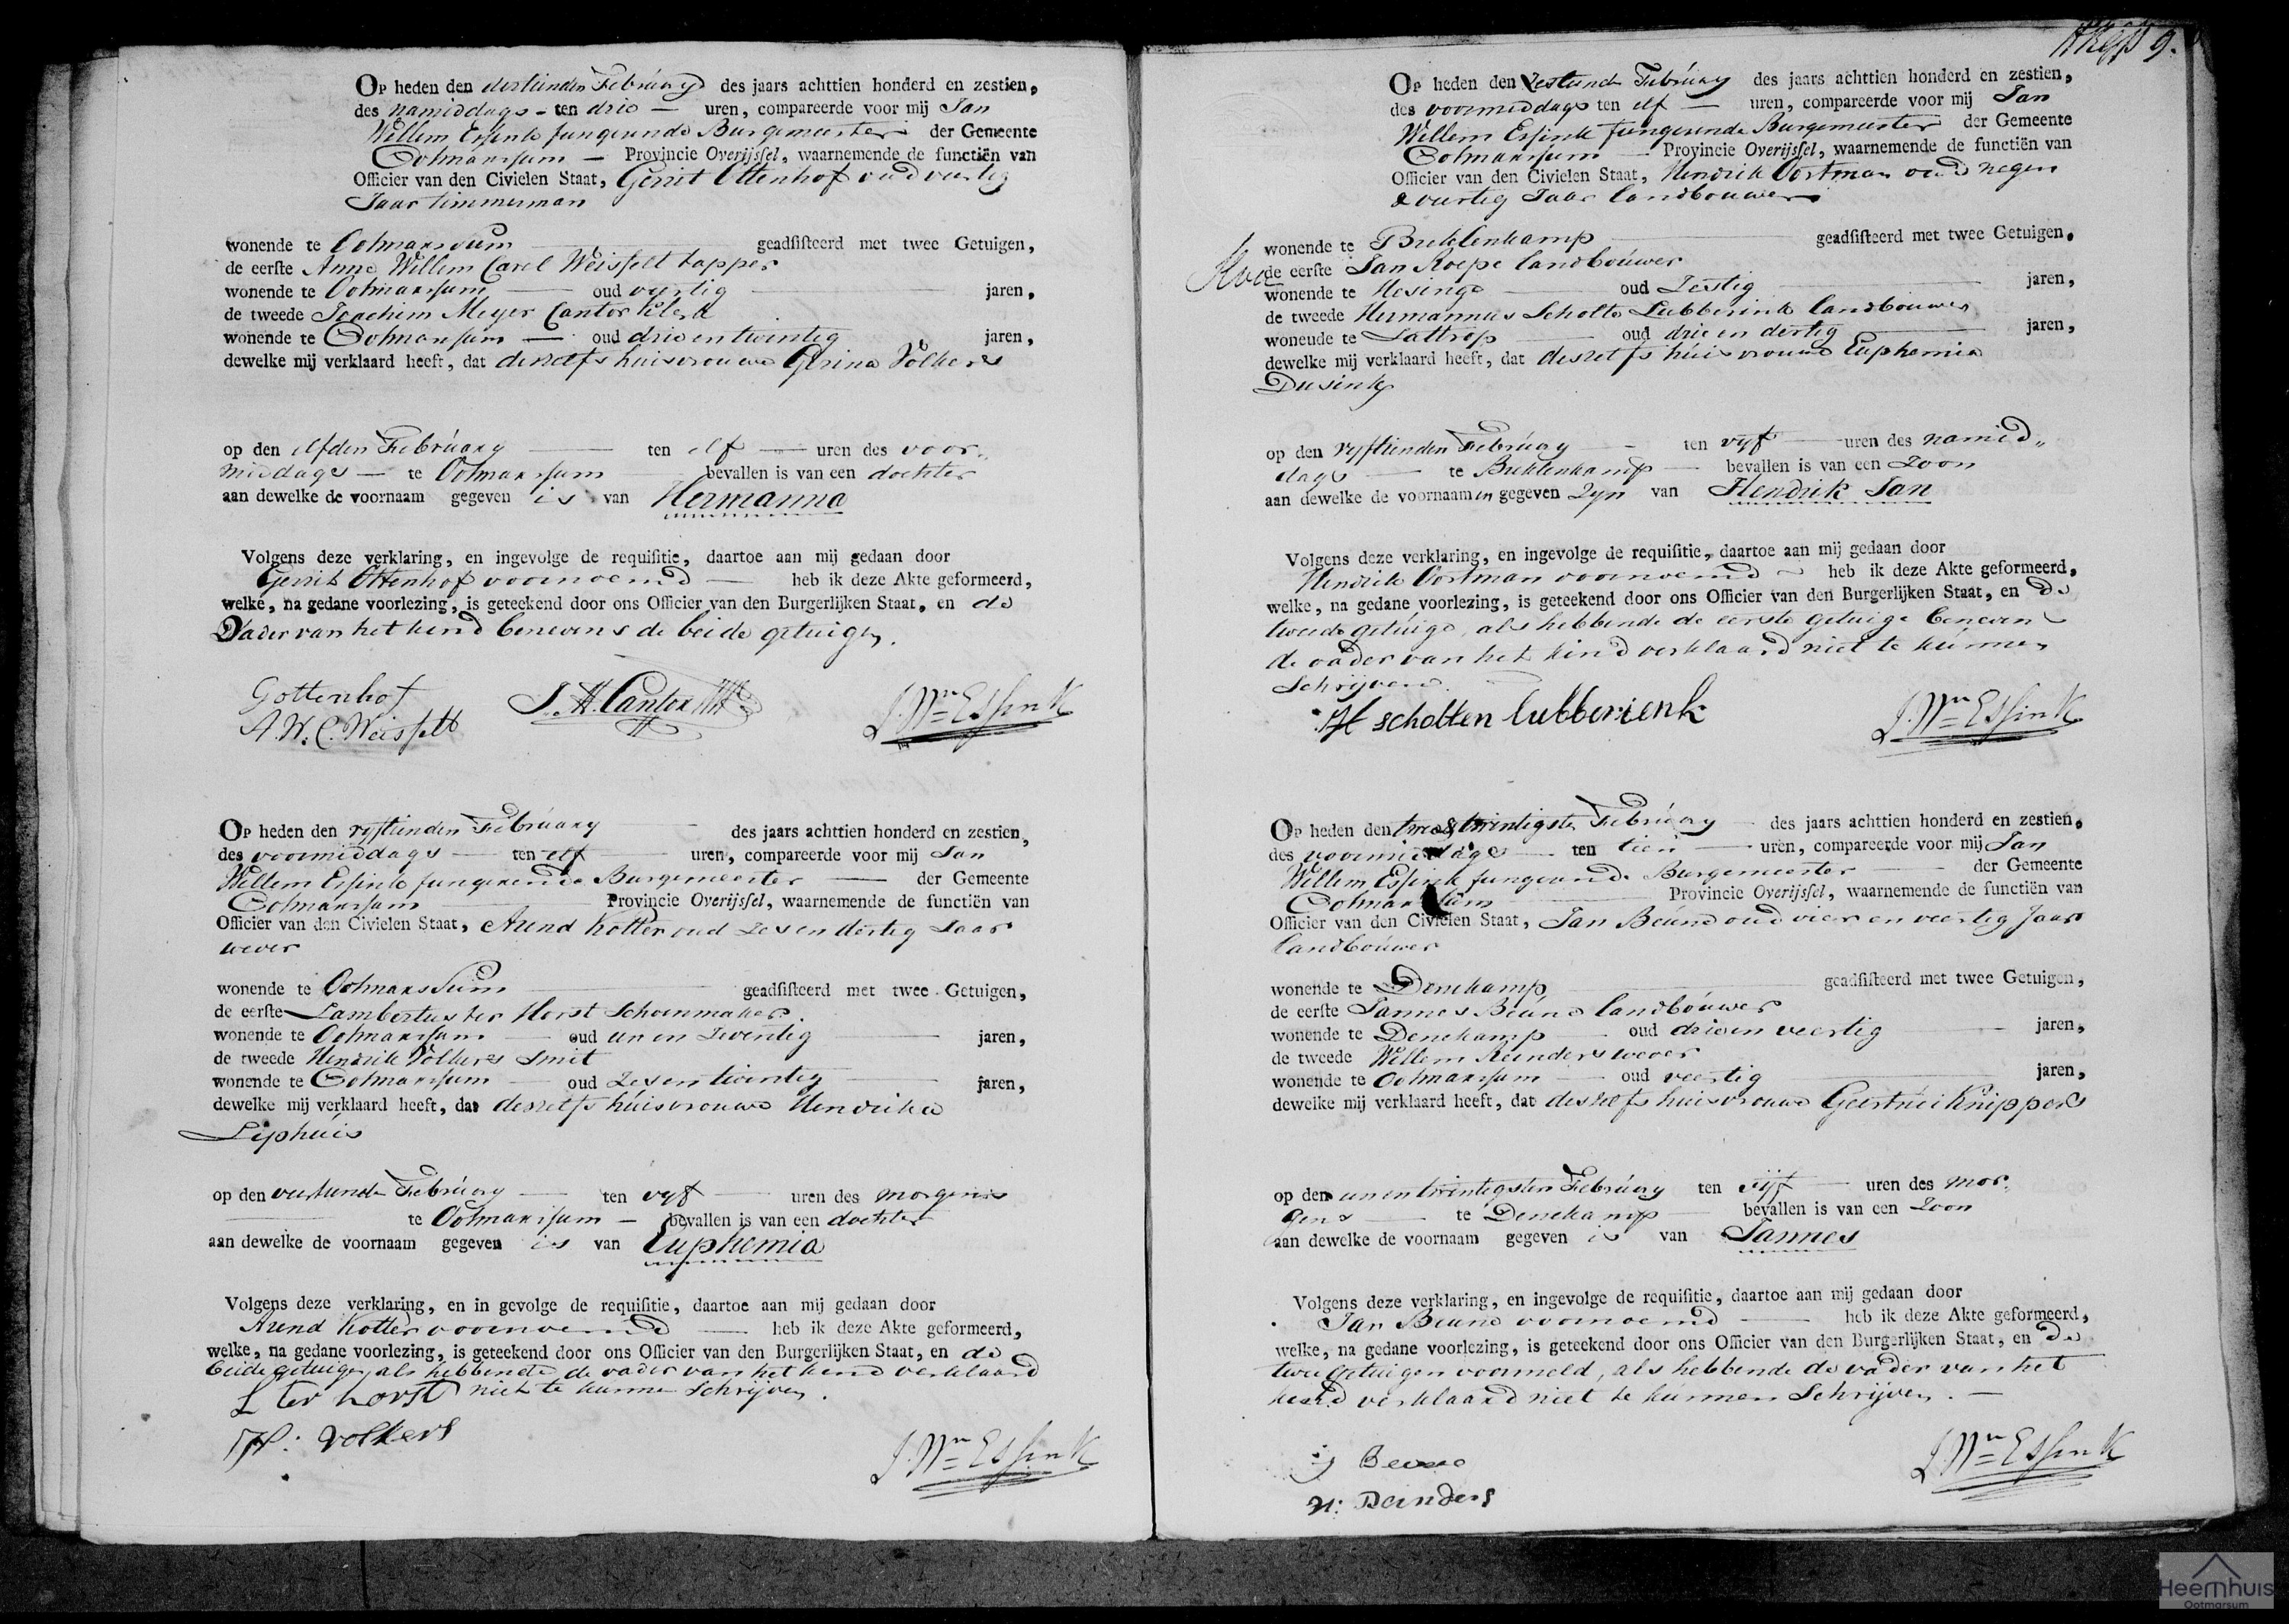 Op heden den dertienden February des jaars achttien honderd en zestien,
des namiddags - ten drie — uren, compareerde voor mij Jan
Willem Essink fungerende Burgemeester der Gemeente
Ootmarssum — Provincie Overijssel, waarnemende de functiën van
Officier van den Civielen Staat, Gerrit Ottenhof oud veertig
Jaar timmerman
wonende te Ootmarssum geadsisteerd met twee Getuigen,
de eerste Anne Willem Carel Weisfelt tapper
wonende te Ootmarssum — oud veertig jaren,
de tweede Joachim Meyer Cantor
wonende te Ootmarssum — oud drie en twintig jaren,
dewelke mij verklaard heeft, dat deszelfs huisvrouwe Gesina Volkers
op den elfden February — ten elf — uren des voor
middags — te Ootmarssum bevallen is van een dochter
aan dewelke de voornaam gegeven is van Hermanna
Volgens deze verklaring, en ingevolge de requisitie, daartoe aan mij gedaan door
Gerrit Ottenhof voornoemd — heb ik deze Akte geformeerd,
welke, na gedane voorlezing, is geteekend door ons Officier van den Burgerlijken Staat, en de
Vader van het kind benevens de beide getuigen.
Gottenhof J. M. Cantor
A. W. C. Weisfelt J. Wm Essink
Op heden den vyftienden February des jaars achttien honderd en zestien,
des voormiddags — ten elf — uren, compareerde voor mij Jan
Willem Essink fungerende Burgemeester — der Gemeente
Ootmarssum Provincie Overijssel, waarnemende de functiën van
Officier van den Civielen Staat, Arend Kotter oud zes en dertig Jaar
wever
wonende te Ootmarssum geadsisteerd met twee Getuigen,
de eerste Lambertus ter Horst Schoenmaker
wonende te Ootmarssum — oud een en zeventig jaren,
de tweede Hendrik Volkers Smit
wonende te Ootmarssum — oud zes en twintig jaren,
dewelke mij verklaard heeft, dat deszelfs huisvrouwe Hendrika
Liphuis
op den veertiende February — ten vyf — uren des morgens
te Ootmarssum — bevallen is van een dochter
aan dewelke de voornaam gegeven is van Euphemia
Volgens deze verklaring, en in gevolge de requisitie, daartoe aan mij gedaan door
Arend Kotter voornoemd — heb ik deze Akte geformeerd,
welke, na gedane voorlezing, is geteekend door ons Officier van den Burgerlijken Staat, en de
beide getuigen, als hebbende de vader van het kind verklaard
L ter horst niet te kunnen Schrijven.
H: Volkers
J. Wm Essink
9.
Op heden den Zestiende February des jaars achttien honderd en zestien,
des voormiddags ten elf — uren, compareerde voor mij Jan
Willem Essink fungerende Burgemeester der Gemeente
Ootmarssum — Provincie Overijssel, waarnemende de functiën van
Officier van den Civielen Staat, Hendrik Oostman oud negen
& veertig Jaar landbouwer
wonende te Breklenkamp geadsisteerd met twee Getuigen,
de eerste Jan Roepe landbouwer
wonende te Hesinge oud Zestig jaren,
de tweede Hermannus Scholte Lubberink landbouwer
wonende te Lattrop oud drie en dertig jaren,
dewelke mij verklaard heeft, dat deszelfs huisvrouwe Euphemia
Dusink
op den vyftienden February — ten vyf — uren des namid„
dags — te Breklenkamp — bevallen is van een Zoon
aan dewelke de voornaamen gegeven zyn van Hendrik Jan
Volgens deze verklaring, en ingevolge de requisitie, daartoe aan mij gedaan door
Hendrik Oostman voornoemd — heb ik deze Akte geformeerd,
welke, na gedane voorlezing, is geteekend door ons Officier van den Burgerlijken Staat, en de
tweede getuige, als hebbende de eerste getuige benevens
de vader van het kind verklaard niet te kunnen
Schrijven.
H scholten lubberienk J. Wm Essink
Op heden den twee & twintigste February des jaars achttien honderd en zestien,
des voormiddags — ten tien — uren, compareerde voor mij Jan
Willem Essink fungerende Burgemeester — der Gemeente
Ootmarssum Provincie Overijssel, waarnemende de functiën van
Officier van den Civielen Staat, Jan Beund oud vier en veertig Jaar
landbouwer
wonende te Denekamp geadsisteerd met twee Getuigen,
de eerste Jannes Beund landbouwer
wonende te Denekamp — oud drie en veertig jaren,
de tweede Willem Reinders wever
wonende te Ootmarssum — oud veertig jaren,
dewelke mij verklaard heeft, dat deszelfs huisvrouwe Geertrui Knippers
op den een en twintigsten February ten vijf — uren des mor
gens — te Denekamp — bevallen is van een Zoon
aan dewelke de voornaam gegeven is van Jannes
Volgens deze verklaring, en ingevolge de requisitie, daartoe aan mij gedaan door
Jan Beund voornoemd — heb ik deze Akte geformeerd,
welke, na gedane voorlezing, is geteekend door ons Officier van den Burgerlijken Staat, en de
twee getuigen voormeld, als hebbende de vader van het
kind verklaard niet te kunnen Schrijven. —
J. Wm Essink
Reinders
Heemhuis
Ootmarsum